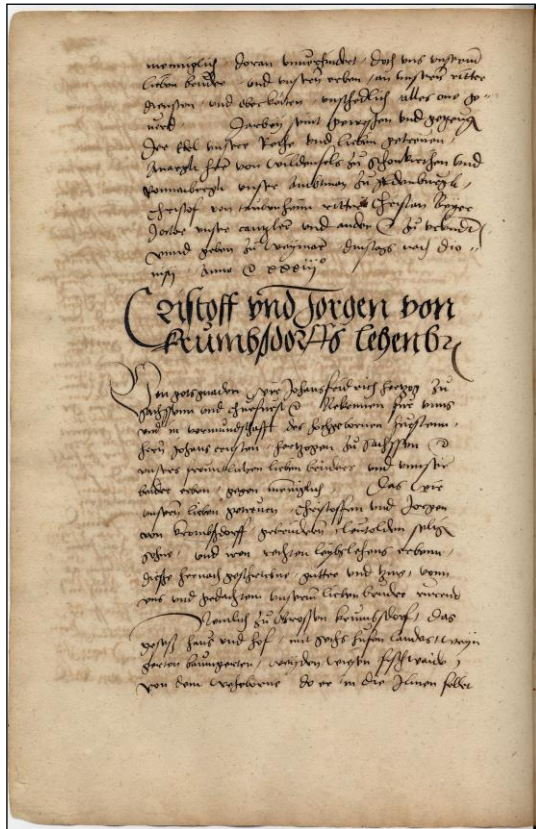 menniglich doran unverhindert, doch uns unserm
lieben bruder und unsern erben, an unsern ritter
diensten, und unschedlich alles one ge-
verd Hierbey seint gewessen und gezeug
die Edel unsere Rethe und lieben getreuen,
her von Wildenfels zu Schonkirchen und
Ronneburgk unser Amtman zu Aldenburgk,
Christof von Taubenheim ritter Christian Beyer
doctor unser cantzler und ander zu urkundt
unnd geben zu Weymar dinstags nach
Anno xxxiij
Cristoff vnd Jorgen von
Krumbsdorffs lehenbr
Von gots gnaden Wir Johansfridrich hertzog zu
Sachssenn und churfurst Bekennen fur unns
und in vormundschafft des hochgebornen fursten,
hern Johans ernsten, hertzogen zu Sachssen
unsers freuntlichen lieben bruders und unser
beider erben, gegen meniglich Das wir
unsern lieben getreuen, Christoffen und Jorgen
von Krombsdorff gebrudern, seligen
sohne, und iren rechten leybslehens erbenn,
diesse hernach geschriebne gutter und zins, vonn
uns und gedachtem unserm lieben bruder rurend
Nemlich zu Grossen Krumbsdorf, das
gesess haus und hof, mit sechs hufen landes, weyn
garten baumgarten, weyden wiessen fischweide,
von dem do er in die Ilmen fellet